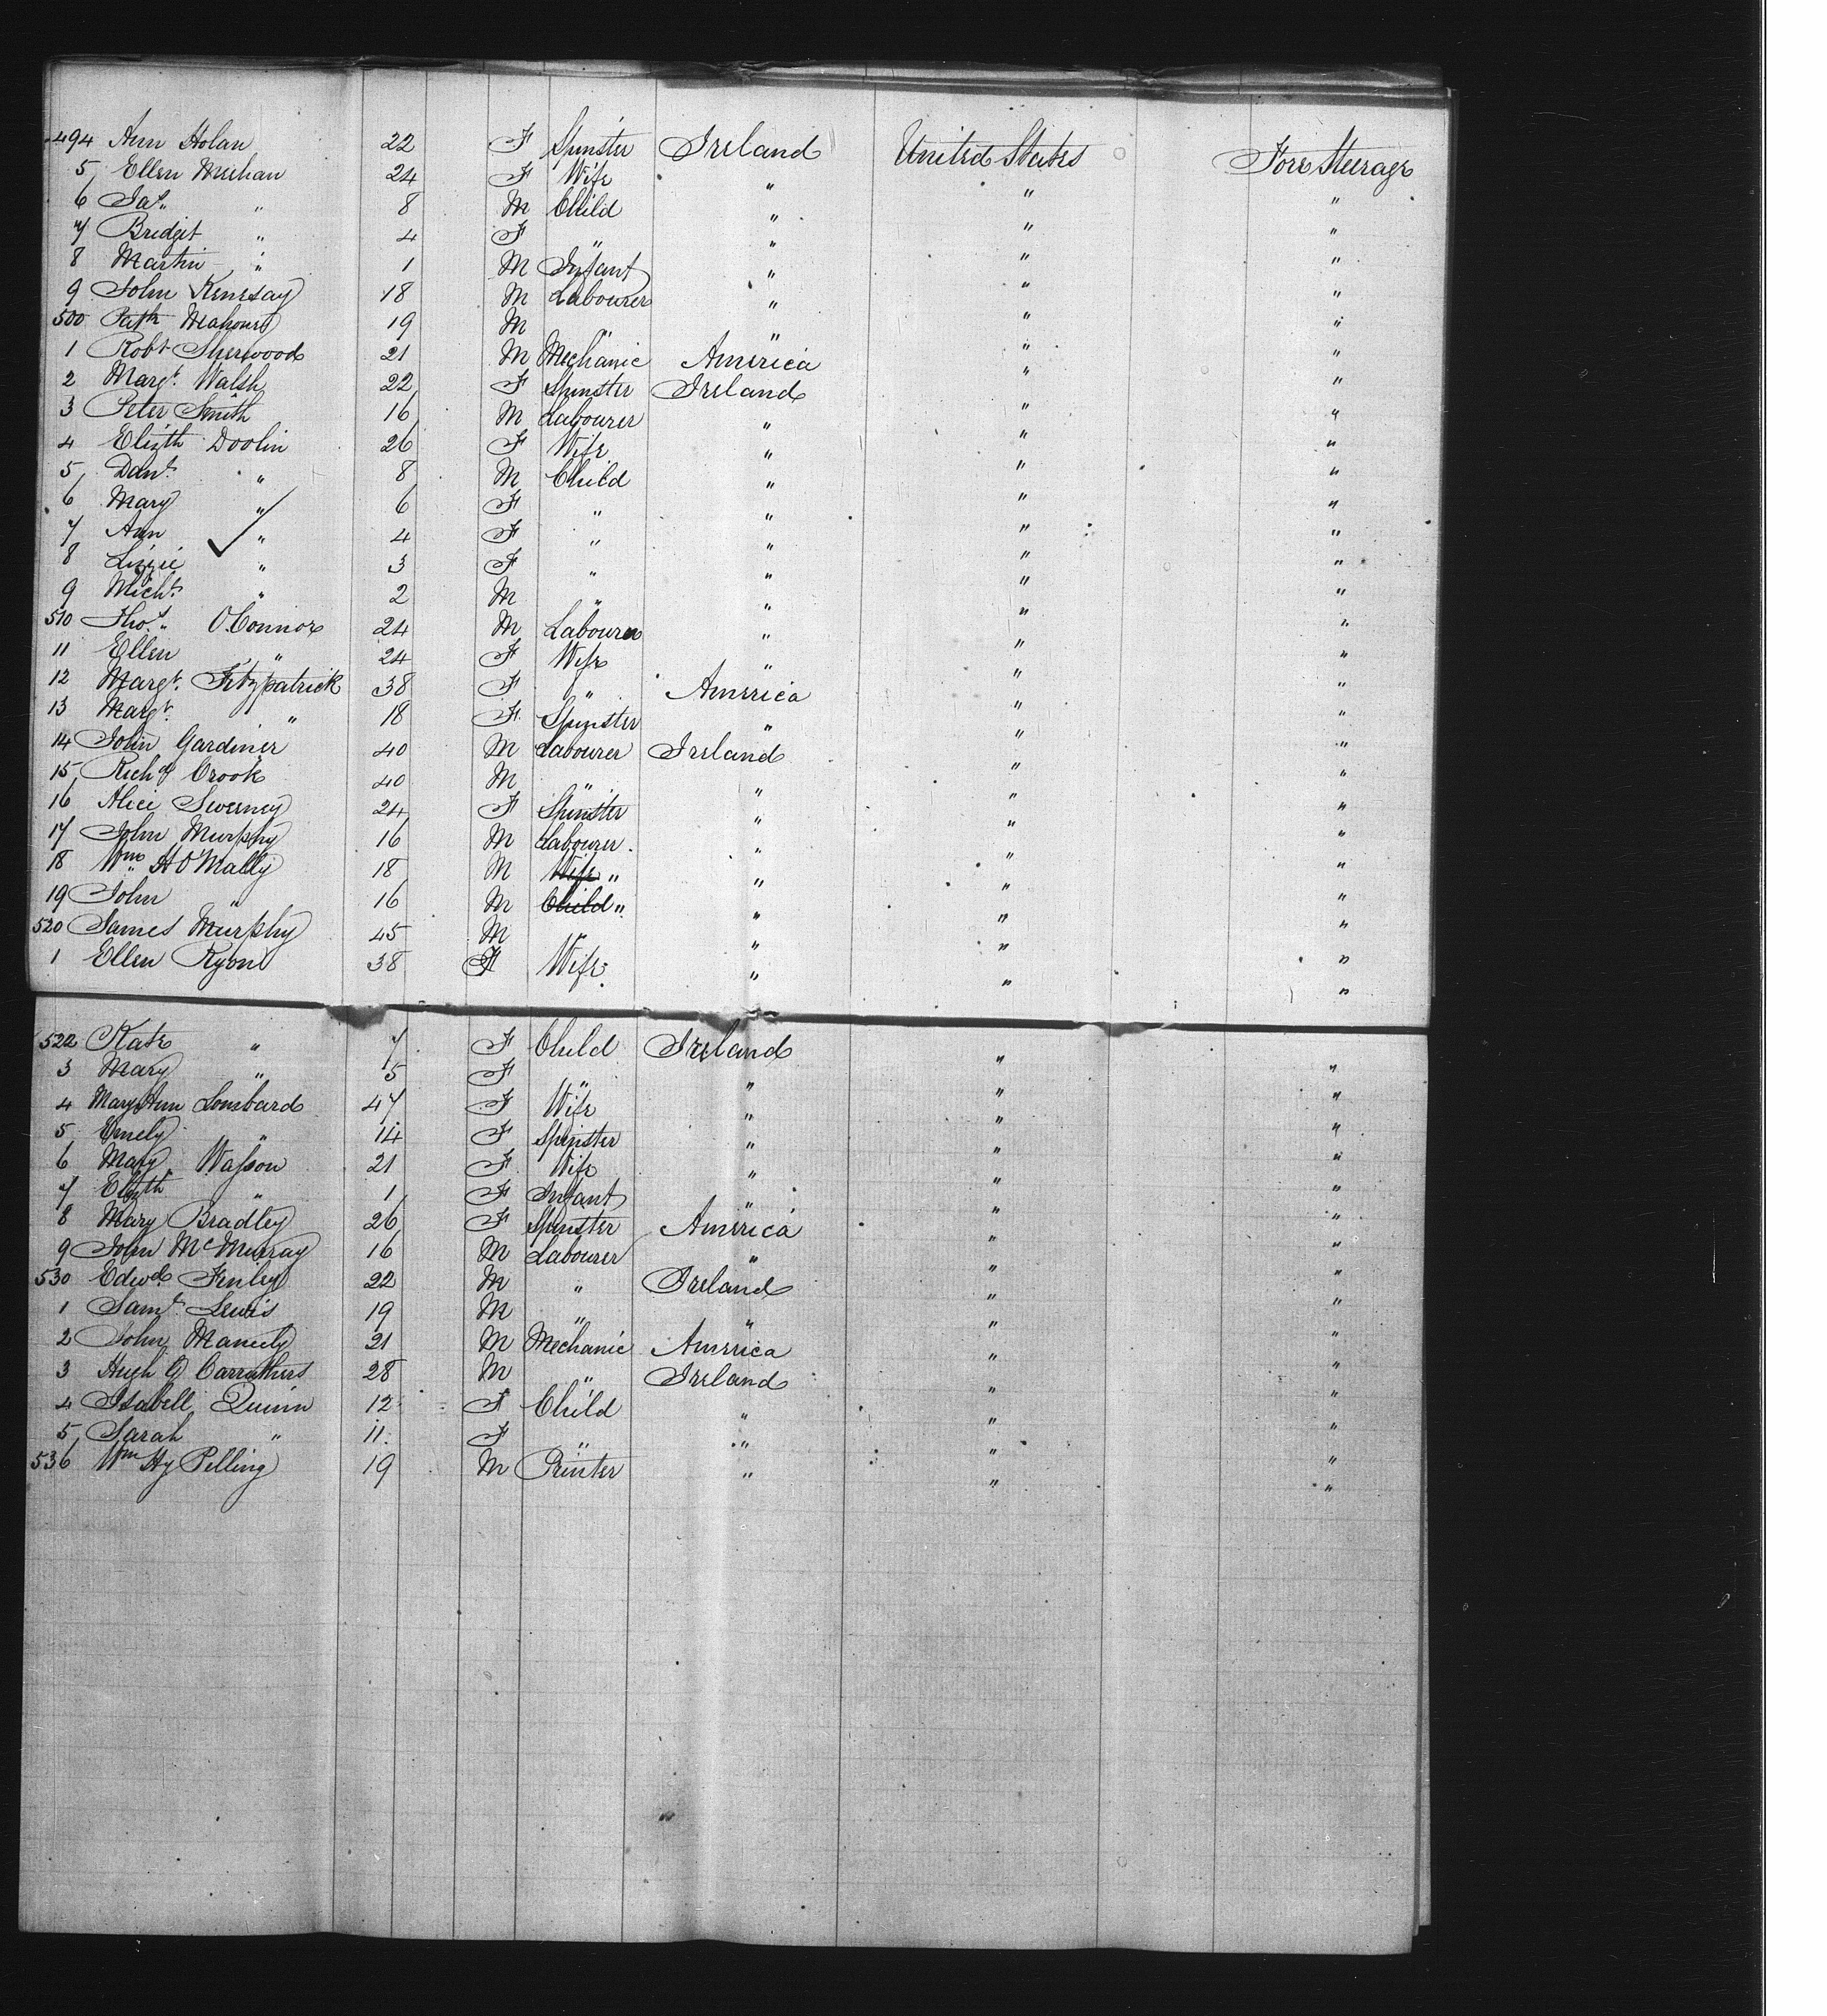 494 Ann Holan 22 F Spinster Ireland United States Fore Steerage
5 Ellen Meehan 24 F Wife " " "
6 Jas. " 8 M Child " " "
7 Bridget " 4 F " " " "
8 Martin " 1 M Infant " " "
9 John Kinesay 18 M Labourer " " "
500 Patk Mahoney 19 M " " " "
1 Robt Sherwood 21 M Mechanic America " "
2 Margt. Walsh 22 F Spinster Ireland " "
3 Peter Smith 16 M Labourer " " "
4 Elizth Doolin 26 F Wife " " "
5 Danl. " 8 M Child " " "
6 Mary " 6 F " " " "
7 Ann " 4 F " " " "
8 Lizzie " 3 F " " " "
9 Michl. " 2 M " " " "
510 Thos. O'Connor 24 M Labourer " " "
11 Ellen " 24 F Wife " " "
12 Margt. Fitzpatrick 38 F " America " "
13 Margt. " 18 F Spinster " " "
14 John Gardiner 40 M Labourer Ireland " "
15 Richd Crook 40 M " " " "
16 Alice Sweeney 24 F Spinster " " "
17 John Murphy 16 M Labourer " " "
18 Wm H O'Mally 18 M Wife " " " "
19 John " 16 M Child " " " "
520 James Murphy 45 M " " " "
1 Ellen Ryon 38 F Wife " " "
522 Kate " 7 F Child Ireland " "
3 Mary " 5 F " " " "
4 Mary Ann Lombard 47 F Wife " " "
5 Emely " 14 F Spinster " " "
6 Mary Wasson 21 F Wife " " "
7 Elizth " 1 F Infant " " "
8 Mary Bradley 26 F Spinster America " "
9 John McMurray 16 M Labourer " " "
530 Edwd. Finley 22 M " Ireland " "
1 Saml. Lewis 19 M " " " "
2 John Manuly 21 M Mechanic America " "
3 Hugh G Carruthers 28 M " Ireland " "
4 Isabell Quinn 12 F Child " " "
5 Sarah " 11 F " " " "
536 Wm Hy Pelling 19 M Printer " " "